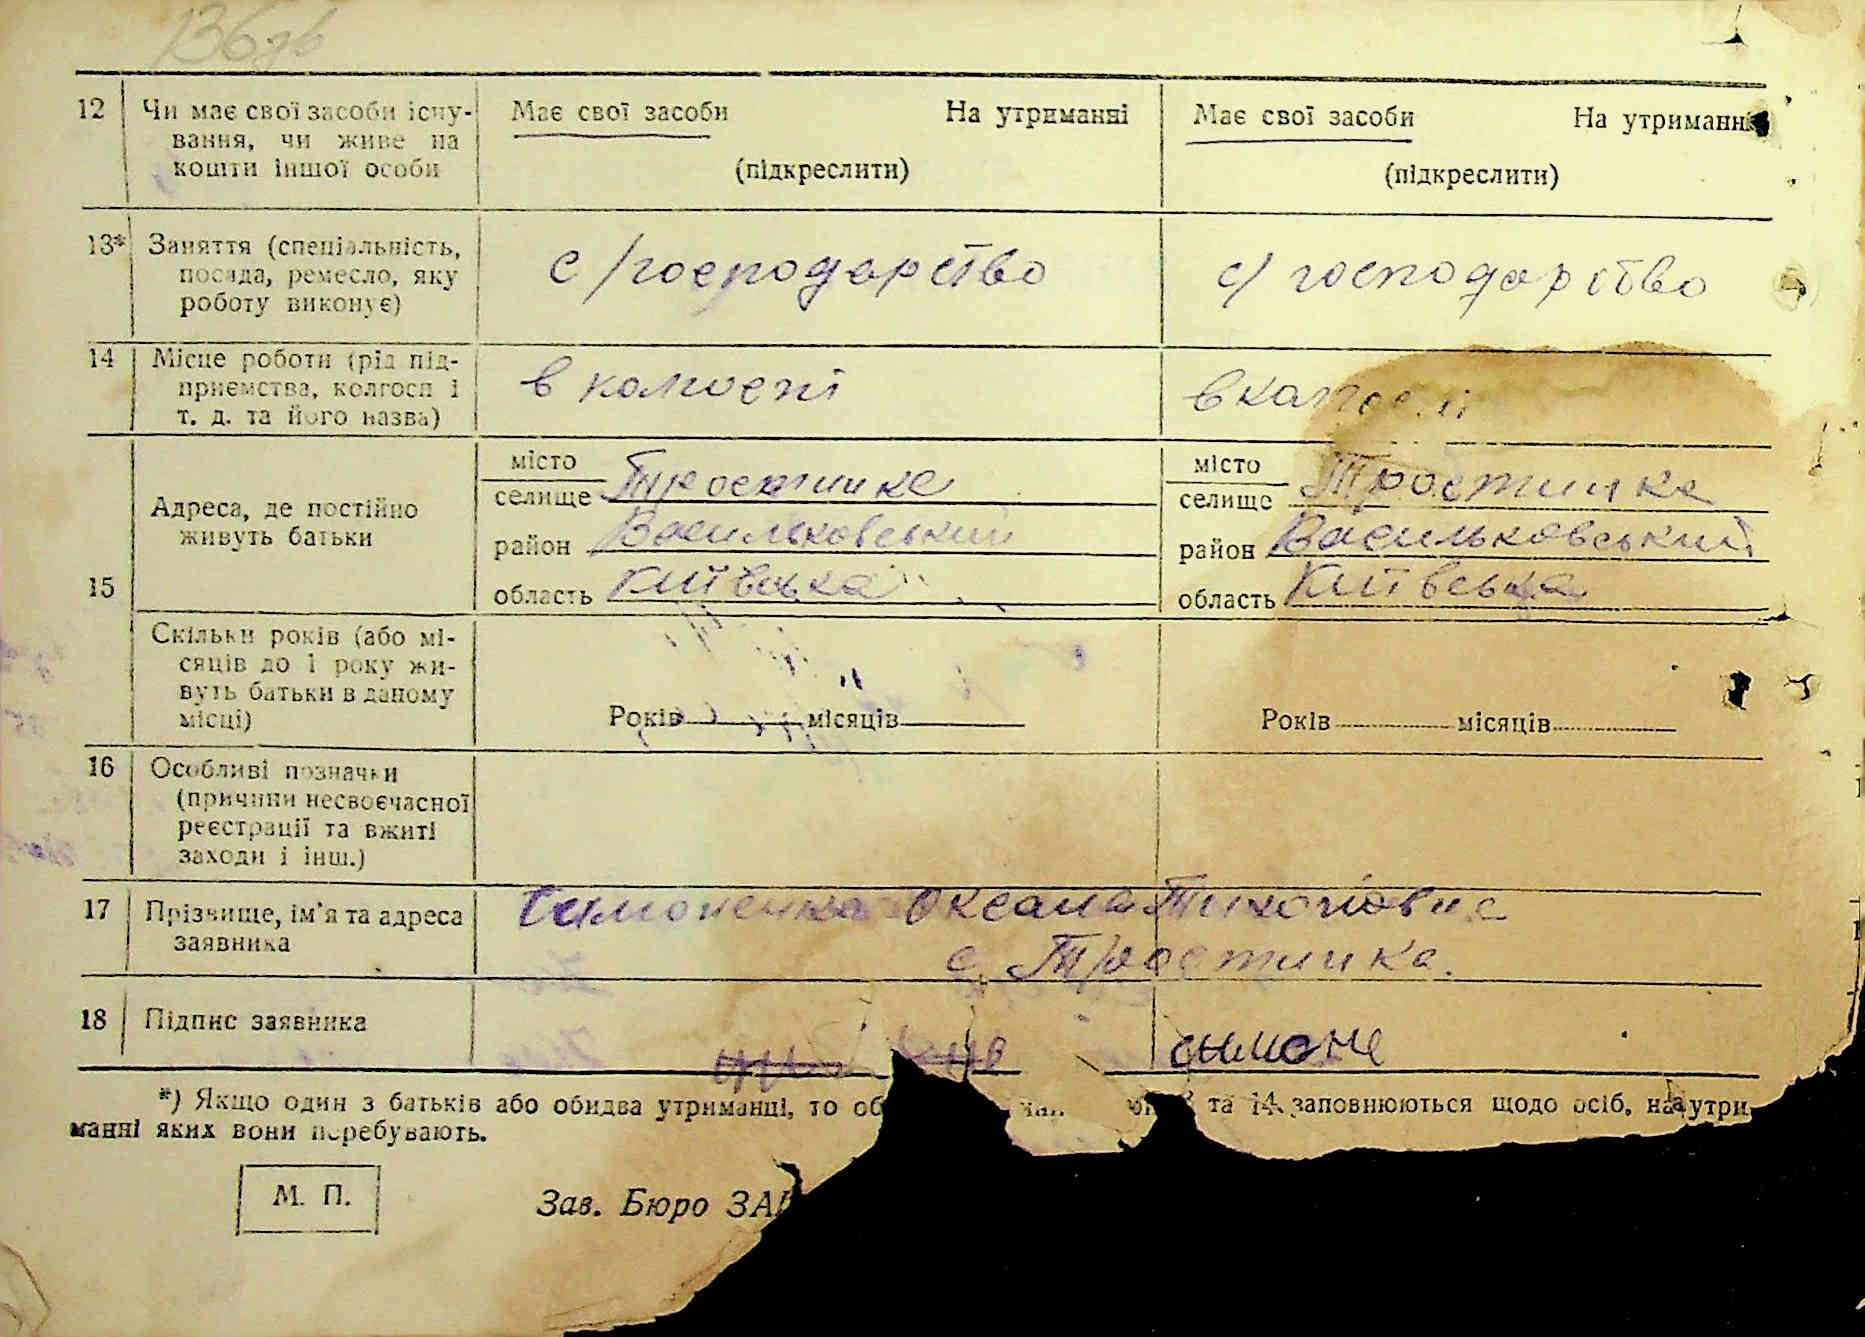 136зв
12 Чи має свої засоби існу- Має свої засоби На утриманні Має свої засоби На утриманні
вання, чи живе на
кошти іншої особи (підкреслити) (підкреслити)
13* Заняття (спеціальність,
посада, ремесло, яку с/господарство с/господарство
роботу виконує)
14 Місце роботи (рід під-
приємства, колгосп і в колгоспі в колгоспі
т. д. та його назва)
місто місто
селище Тростинка селище Тростинка
Адреса, де постійно
живуть батьки район Васильковський район Васильковський
15 область Київська область Київська
Скільки років (або мі-
сяців до 1 року жи-
вуть батьки в даному
місці) Років місяців Років місяців
16 Особливі позначки
(причини несвоєчасної
реєстрації та вжиті
заходи і інш.)
17 Прізвище, ім'я та адреса Симоненко Оксана Тихоновна
заявника с. Тростинка.
18 Підпис заявника симоне
*) Якщо один з батьків або обидва утриманці, то об та 14 заповнюються щодо осіб, на утри-
манні яких вони перебувають.
М. П. Зав. Бюро ЗАГ